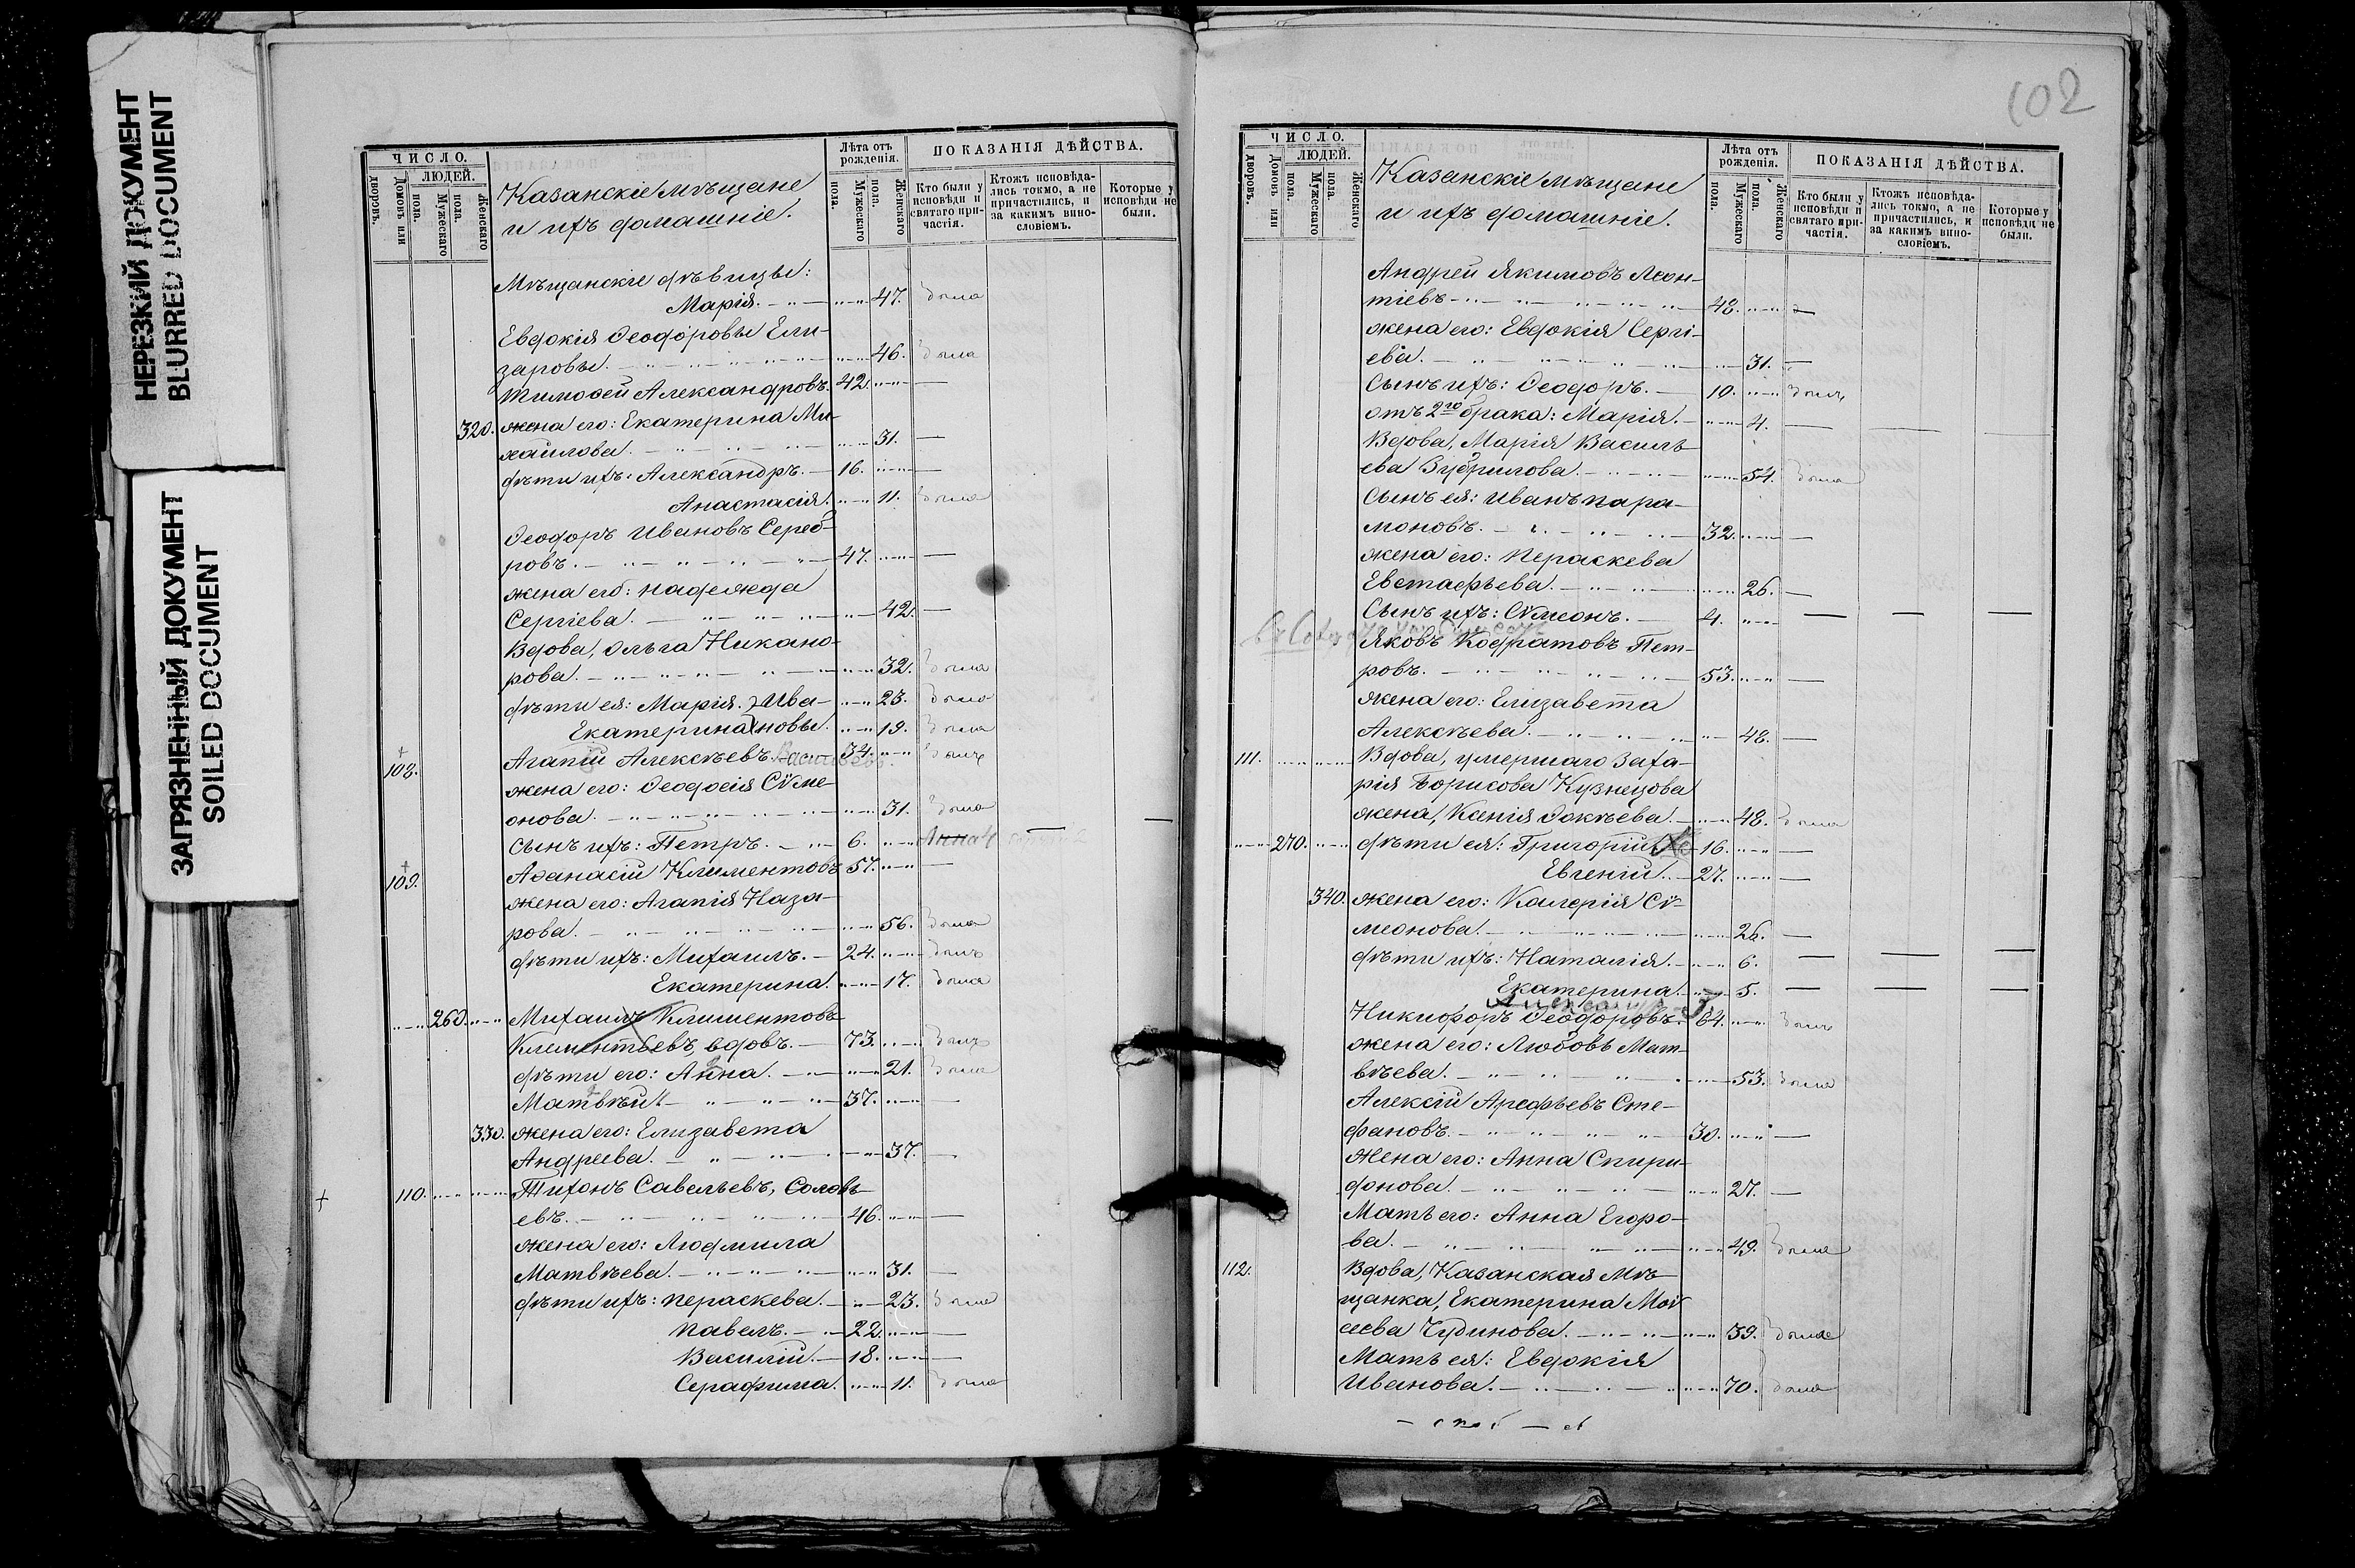 НЕРЕЗКИЙ ДОКУМЕНТ
BLURRED DOCUMENT
ЗАГРЯЗНЕННЫЙ ДОКУМЕНТ
SOILED DOCUMENT
ЧИСЛО.
ЛЮДЕЙ.
Домовъ или дворовъ.
Мужескаго пола.
Женскаго пола.
Казанскіе мѣщане
и ихъ домашніе.
Лѣта отъ рожденія.
Мужескаго пола.
Женскаго пола.
ПОКАЗАНІЯ ДѢЙСТВА.
Кто были у исповѣди и святаго причастія.
Ктожъ исповѣда-
лись токмо, а не
причастились, и
за какимъ вино-
словіемъ.
Которые у
исповѣди не
были.
Мѣщанскіе дѣвицы:
Марія. 47. была
Евдокія Ѳеодоровы Ели-
заровы. 46. была
Тимоѳей Александровъ. 42.
320. жена его: Екатерина Ми-
хайлова. 31.
дѣти ихъ: Александръ. 16.
Анастасія. 11. была
Ѳеодоръ Ивановъ Сереб-
ровъ. 47.
жена его: Надежда
Сергіева. 42.
Вдова, Ольга Никано-
рова. 32. была
дѣти ея: Марія. Ива- 23. была
Екатерина новы. 19. была
108. Агапій Алексѣевъ. 34. былъ
жена его: Ѳеодосія Сѵме-
онова. 31. была
сынъ ихъ: Петръ. 6. Анна 4
109. Аѳанасій Климентовъ 57.
жена его: Агапія Наза-
рова. 56. была
дѣти ихъ: Михаилъ. 24. былъ
Екатерина. 17. была
260. Михаилъ Климентовъ
Клементьевъ, вдовъ. 73. былъ
дѣти его: Анна. 21. была
Матвѣй 37.
330. жена его: Елизавета
Андреева. 37.
110. Тихонъ Савельевъ, Соловь-
евъ. 46.
жена его: Людмила
Матвѣева. 31.
дѣти ихъ: Пераскева. 23. была
Павелъ. 22.
Василій. 18.
Серафима. 11. была
102
ЧИСЛО.
ЛЮДЕЙ.
Домовъ или дворовъ.
Мужескаго пола.
Женскаго пола.
Казанскіе мѣщане
и ихъ домашніе.
Лѣта отъ рожденія.
Мужескаго пола.
Женскаго пола.
ПОКАЗАНІЯ ДѢЙСТВА.
Кто были у исповѣди и святаго причастія.
Ктожъ исповѣда-
лись токмо, а не
причастились, и
за какимъ вино-
словіемъ.
Которые у
исповѣди не
были.
Андрей Якимовъ Леон-
тіевъ 42.
жена его: Евдокія Сергі-
ева. 31.
Сынъ ихъ: Ѳеодоръ. 10. былъ
отъ 2го брака: Марія. 4.
Вдова, Марія Василь-
ева Зубрилова. 54. была
Сынъ ея: Иванъ Пара-
моновъ. 32.
жена его: Пераскева
Евстафьева. 26.
Сынъ ихъ: Сѵмеонъ. 4.
Яковъ Кодратовъ Пет-
ровъ. 53.
жена его: Елизавета
Алексѣева. 48.
111. Вдова, умершаго Заха-
рія Борисова Кузнецова
жена, Ксенія Фокѣева. 48. была
270. дѣти ея: Григорій 16.
Евгеній. 27.
340. жена его: Калерія Сѵ-
меонова. 26.
дѣти ихъ: Наталія. 6.
Екатерина. 5.
Никифоръ Ѳеодоровъ. 64. былъ
жена его: Любовь Мат-
вѣева. 53. была
Алексій Арефьевъ Сте-
фановъ. 30.
жена его: Анна Спири-
донова. 27.
Мать его: Анна Егоро-
ва. 49. была
112. Вдова, Казанская мѣ-
щанка, Екатерина Мои-
сеева Чудинова. 39. была
Мать ея: Евдокія
Иванова. 70. была